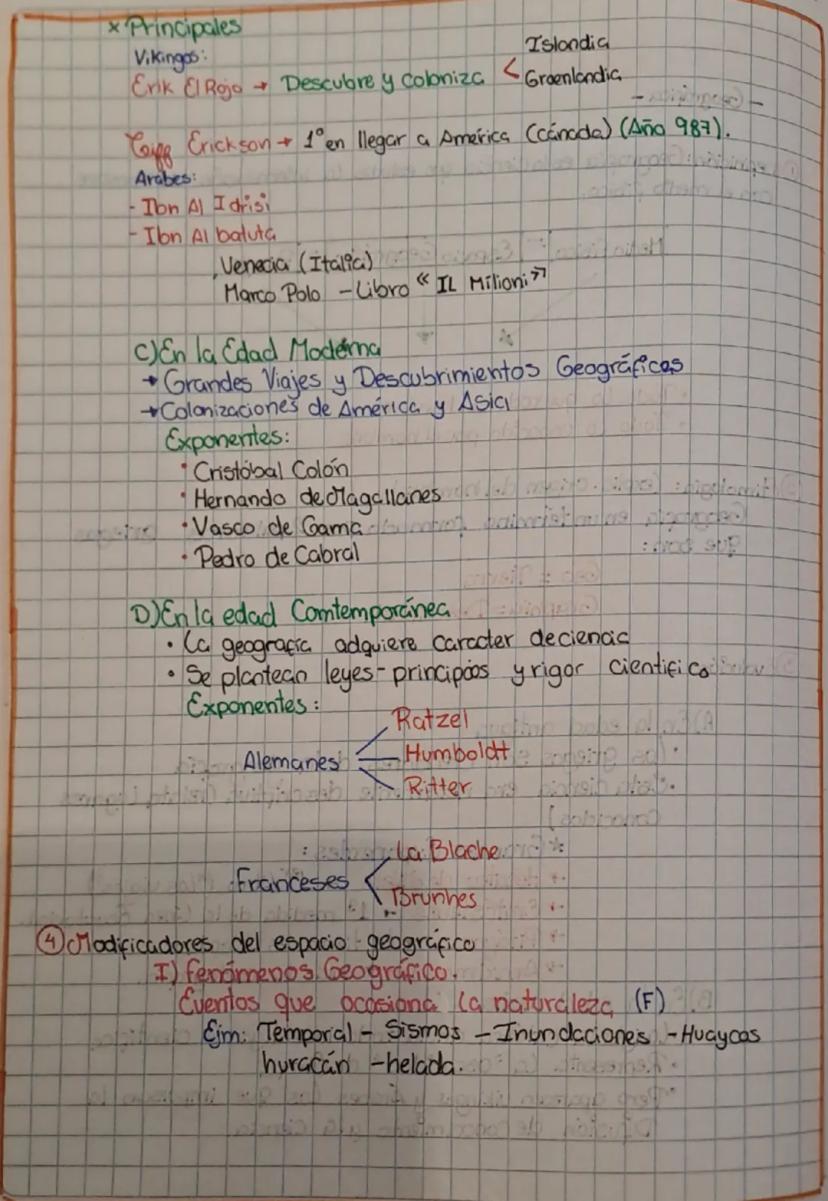 × Principales
Vikingos:
Erik El Rojo → Descubre y Coloniza < Islandia
Groenlandia
Leiff Erickson → 1° en llegar a América (Cánada) (Año 987).
Arabes:
- Ibn Al Idrisi
- Ibn Al batuta
Venecia (Italia)
Marco Polo - Libro «IL Milioni»
C) En la Edad Moderna
→ Grandes Viajes y Descubrimientos Geográficos
→ Colonizaciones de América y Asia
Exponentes:
• Cristóbal Colón
• Hernando de Magallanes
• Vasco de Gama
• Pedro de Cabral
D) En la edad Comtemporánea
• La geografía adquiere caracter de ciencia
• Se plantean leyes - principios y rigor cientifico
Exponentes:
Ratzel
Alemanes Humboldt
Ritter
La Blache
Franceses <
Brunhes
④ Modificadores del espacio geográfico
I) fenómenos Geográfico.
Eventos que ocasiona la naturaleza (F)
Ejm: Temporal - Sismos - Inundaciones - Huaycos
huracán - helada.